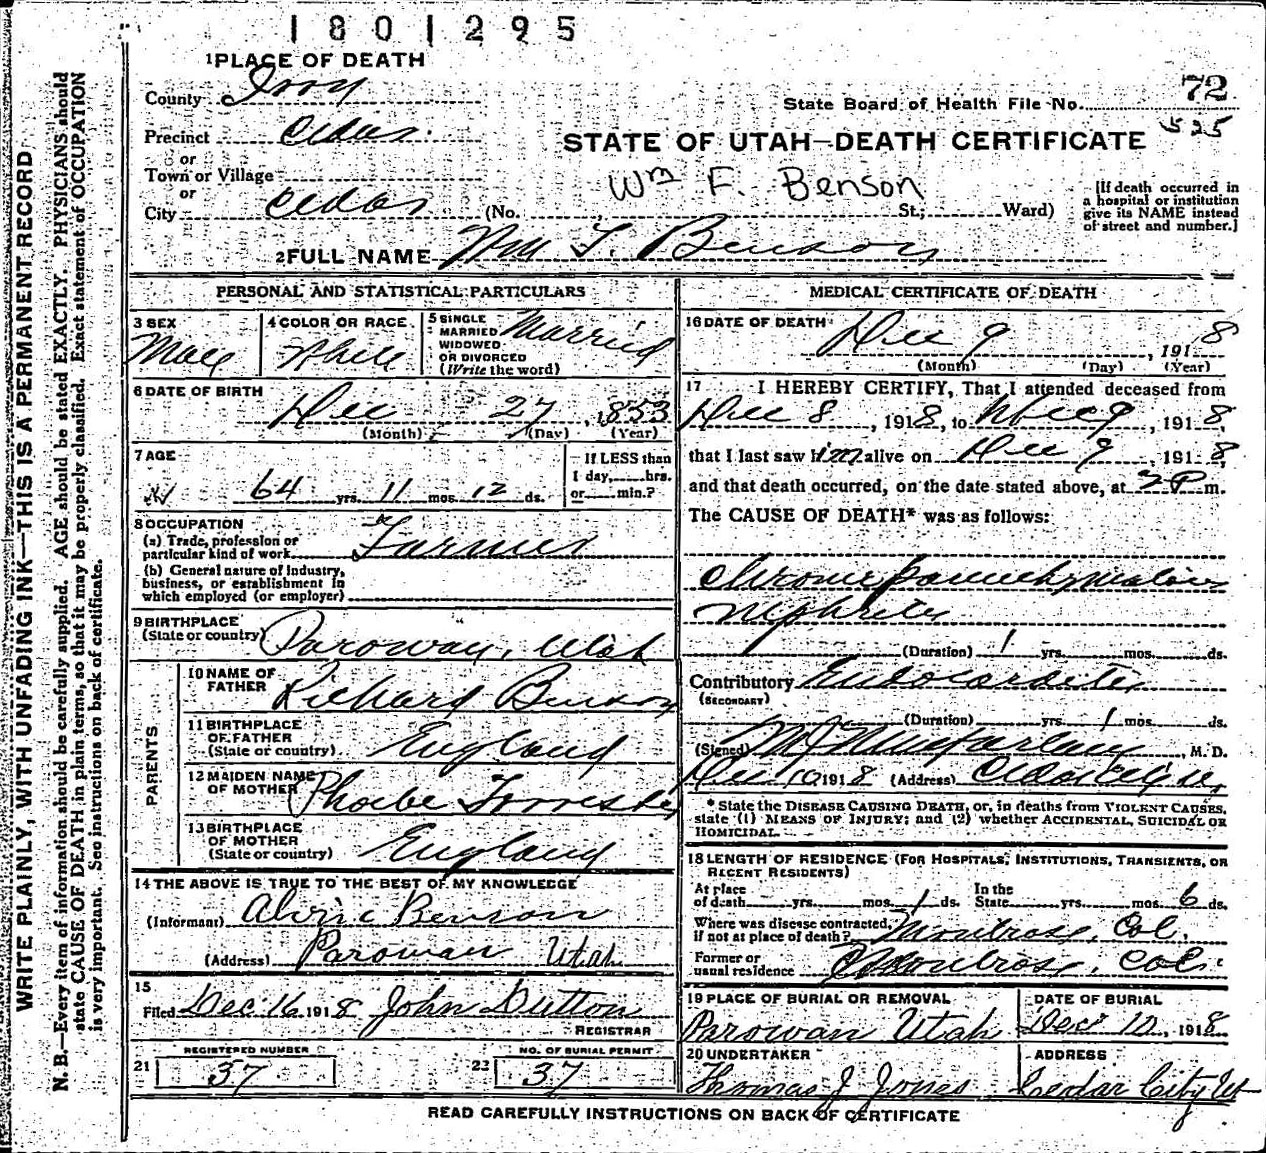 1801295
1 PLACE OF DEATH
County Iron
72
State Board of Health File No. 525
Precinct Cedar
STATE OF UTAH—DEATH CERTIFICATE
or
Town or Village
Wm F. Benson
or
City Cedar (No. St.; Ward)
[If death occurred in a hospital or institution give its NAME instead of street and number.]
2 FULL NAME Wm F. Benson
PERSONAL AND STATISTICAL PARTICULARS
3 SEX Male
4 COLOR OR RACE White
5 SINGLE MARRIED WIDOWED OR DIVORCED (Write the word) Married
6 DATE OF BIRTH
Dec 27, 1853
(Month) (Day) (Year)
7 AGE
64 yrs. 11 mos. 12 ds.
If LESS than 1 day, hrs. or min.?
8 OCCUPATION
(a) Trade, profession or particular kind of work Farmer
(b) General nature of industry, business, or establishment in which employed (or employer)
9 BIRTHPLACE
(State or country) Parowan, Utah
PARENTS
10 NAME OF FATHER Richard Benson
11 BIRTHPLACE OF FATHER (State or country) England
12 MAIDEN NAME OF MOTHER Phoebe Forrester
13 BIRTHPLACE OF MOTHER (State or country) England
14 THE ABOVE IS TRUE TO THE BEST OF MY KNOWLEDGE
(Informant) Benson
(Address) Parowan Utah
15
Filed Dec 16 1918 John Dutton
REGISTRAR
REGISTERED NUMBER
21 37
NO. OF BURIAL PERMIT
22 37
MEDICAL CERTIFICATE OF DEATH
16 DATE OF DEATH Dec 9, 1918
(Month) (Day) (Year)
17 I HEREBY CERTIFY, That I attended deceased from
Dec 8, 1918, to Dec 9, 1918,
that I last saw him alive on Dec 9, 1918,
and that death occurred, on the date stated above, at 2 P m.
The CAUSE OF DEATH* was as follows:
Chronic parenchymatous
Nephritis
(Duration) 1 yrs. mos. ds.
Contributory Endocarditis
(SECONDARY)
(Duration) yrs. 1 mos. ds.
(Signed) M J Macfarlane, M. D.
Dec 10 1918 (Address) Cedar City
* State the DISEASE CAUSING DEATH, or, in deaths from VIOLENT CAUSES,
state (1) MEANS OF INJURY; and (2) whether ACCIDENTAL, SUICIDAL OR
HOMICIDAL.
18 LENGTH OF RESIDENCE (FOR HOSPITALS, INSTITUTIONS, TRANSIENTS, OR
RECENT RESIDENTS)
At place of death yrs. mos. 1 ds. In the State yrs. mos. 6 ds.
Where was disease contracted, if not at place of death? Montrose, Col.
Former or usual residence Montrose, Col.
19 PLACE OF BURIAL OR REMOVAL
Parowan Utah
DATE OF BURIAL
Dec 12, 1918
20 UNDERTAKER
Thomas J Jones
ADDRESS
Cedar City Ut
READ CAREFULLY INSTRUCTIONS ON BACK OF CERTIFICATE
WRITE PLAINLY, WITH UNFADING INK—THIS IS A PERMANENT RECORD
N. B.—Every item of information should be carefully supplied. AGE should be stated EXACTLY. PHYSICIANS should
state CAUSE OF DEATH in plain terms, so that it may be properly classified. Exact statement of OCCUPATION
is very important. See instructions on back of certificate.